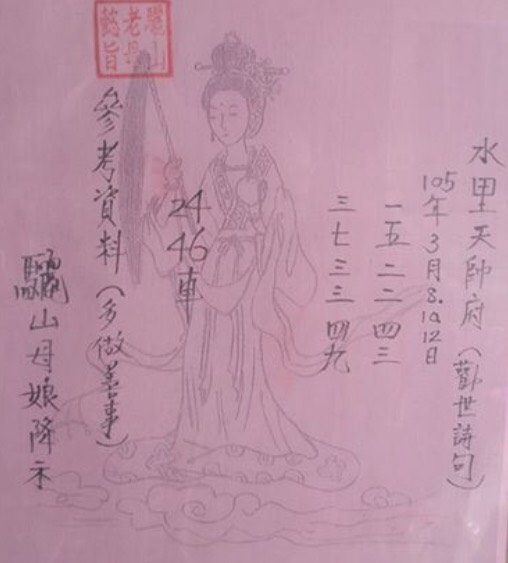 水里天帥府(勸世詩句)
105年3月8.10.12日
一五 二二 四三
三七 三三 四九
24
46車
參考資料(多做善事)
驪山母娘降示
驪山
老母
懿旨